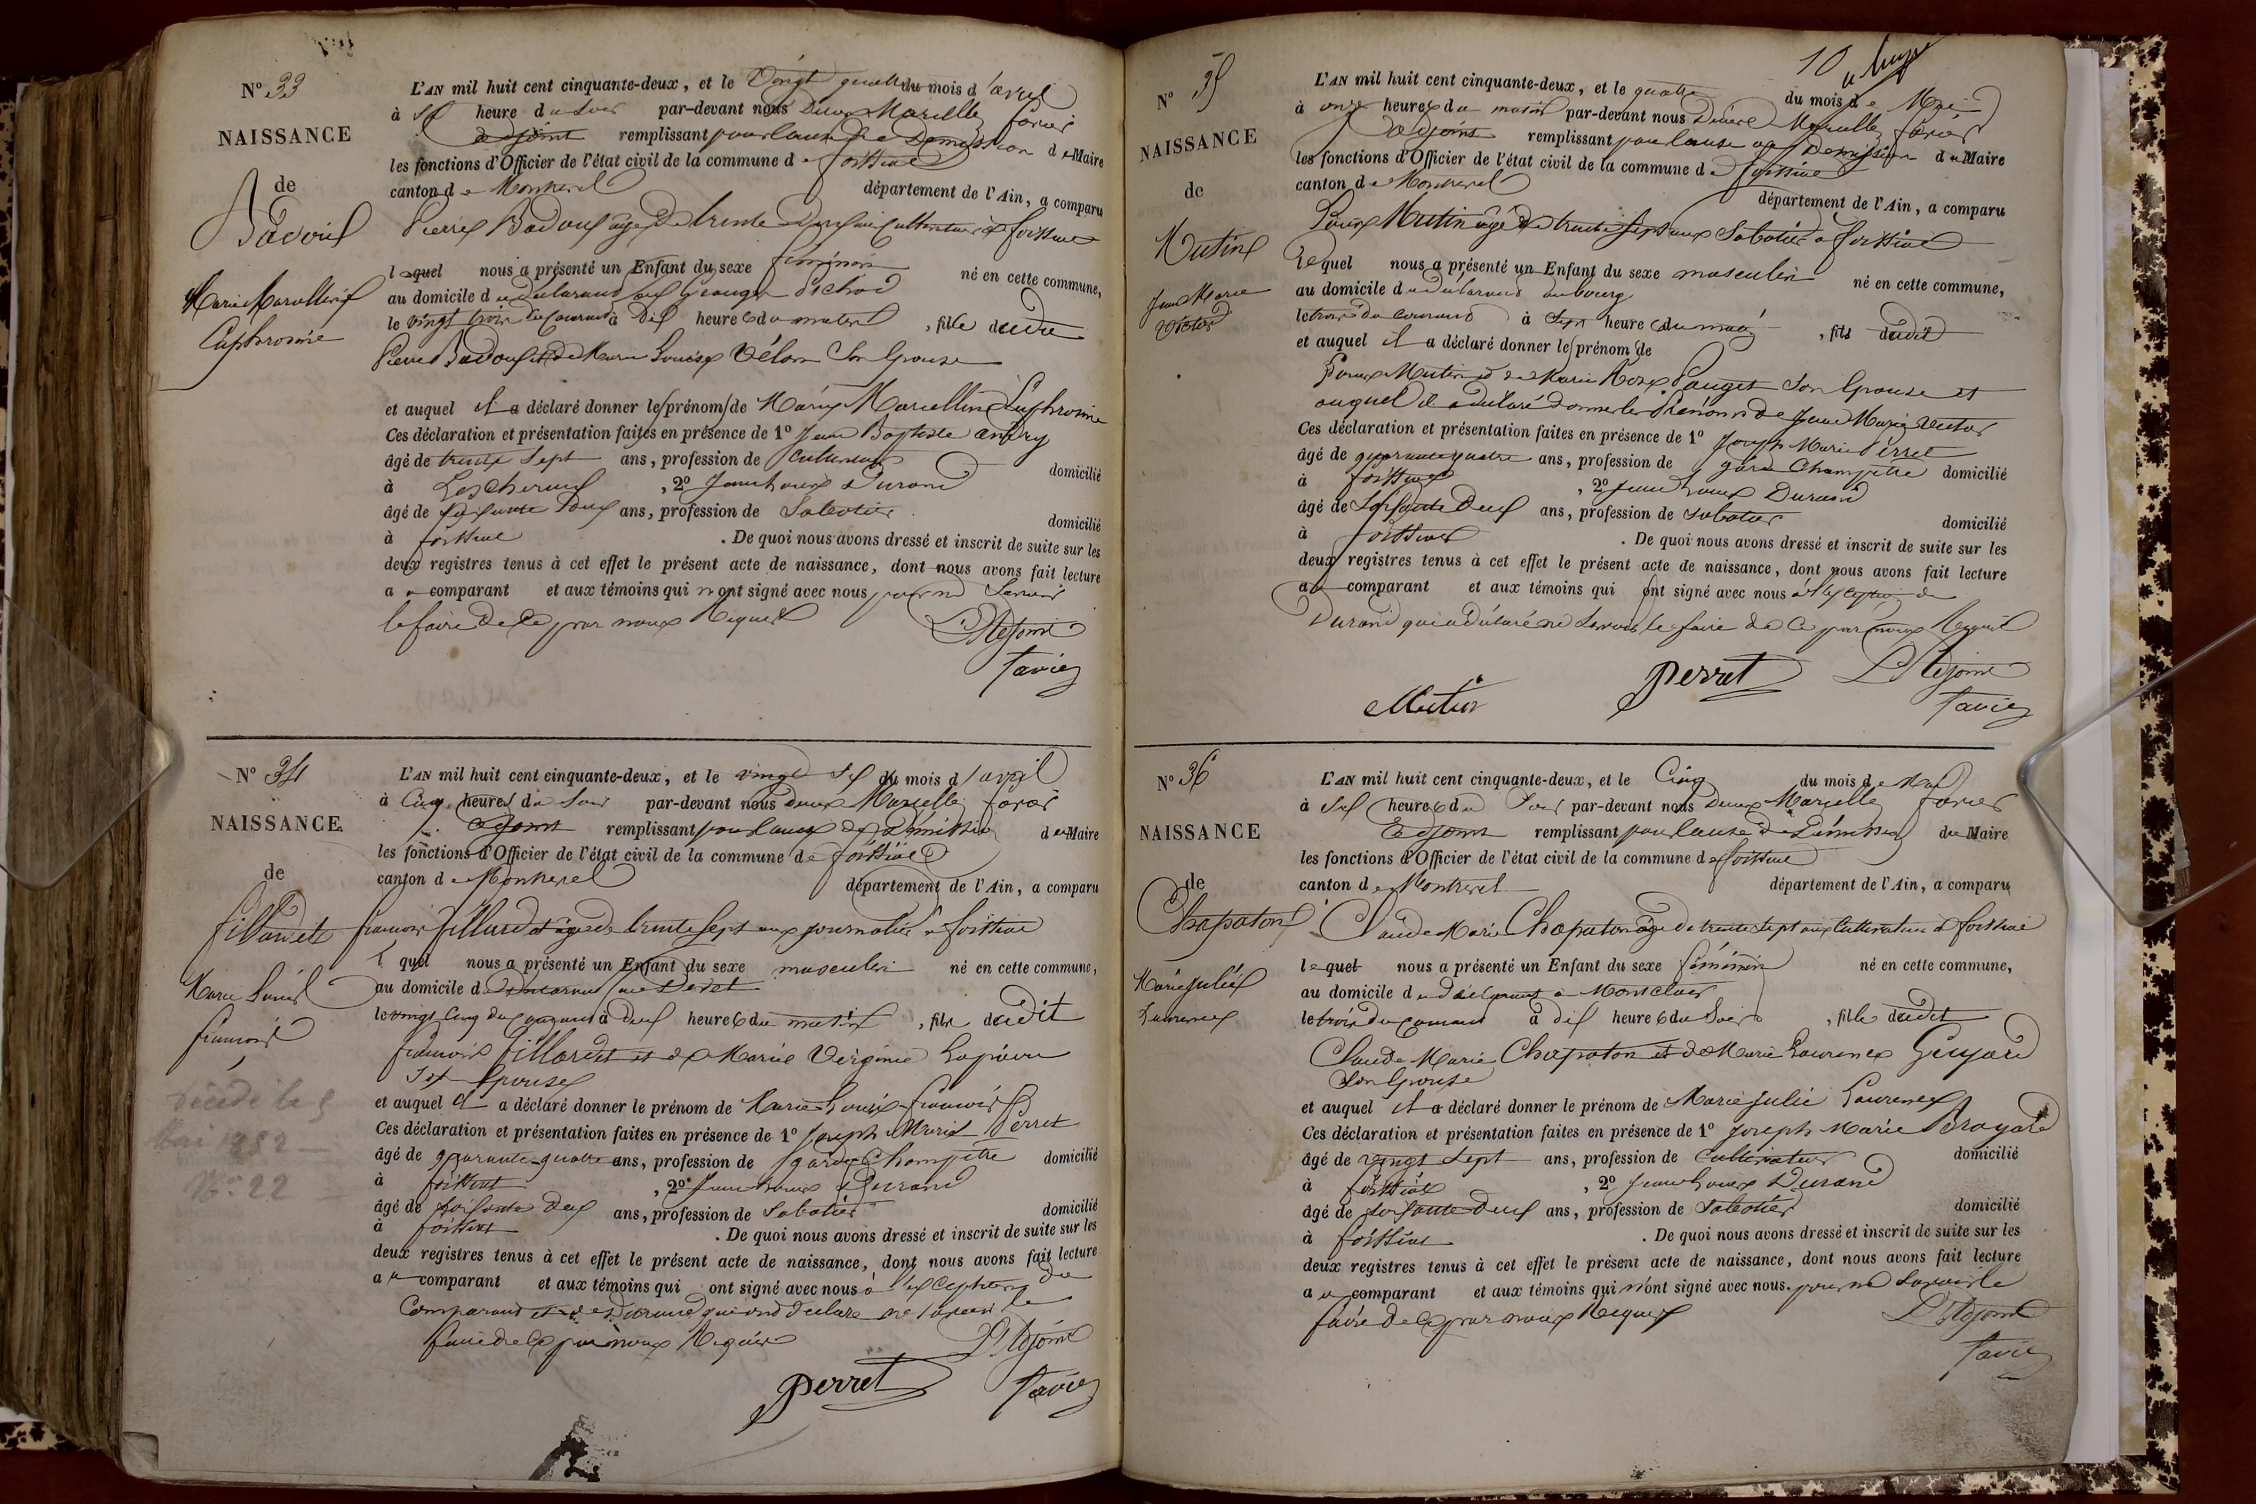 N° 33
NAISSANCE
de
Badoux
Marie Marcelline
Euphrosine
L'AN mil huit cent cinquante-deux, et le Vingt quatre du mois d'avril
à six heure du soir par-devant nous Marcellin
adjoint remplissant pour cause de Démission du Maire
les fonctions d'Officier de l'état civil de la commune de foissiat
canton de Montrevel département de l'Ain, a comparu
Pierre Badoux agé de trente ans cultivateur à foissiat
lequel nous a présenté un Enfant du sexe féminin né en cette commune,
au domicile du déclarant
le vingt trois du courant à dix heures du matin, fille dudit
Pierre Badoux et de Marie Louise Vélon Son Epouse
et auquel il a déclaré donner les prénoms de Marie Marcelline Euphrosine
Ces déclaration et présentation faites en présence de 1° Jean Baptiste
âgé de trente Sept ans, profession de Cultivateur domicilié
à Lescheroux, 2° Jean Louis Durand
âgé de soixante Deux ans, profession de Sabotier domicilié
à foissiat. De quoi nous avons dressé et inscrit de suite sur les
deux registres tenus à cet effet le présent acte de naissance, dont nous avons fait lecture
au comparant et aux témoins qui n'ont signé avec nous pour ne Savoir
le faire de ce par nous Requis
L'Adjoint
favier
N° 34
NAISSANCE
de
fillardet
Marie Louis
francois
décédé le 5
Mai 1852
N° 22
L'AN mil huit cent cinquante-deux, et le vingt six du mois d'avril
à Cinq heures du Soir par-devant nous Marcellin
adjoint remplissant pour cause de démission du Maire
les fonctions d'Officier de l'état civil de la commune de foissiat
canton de Montrevel département de l'Ain, a comparu
francois fillardet agé de trente sept ans journalier à foissiat
lequel nous a présenté un Enfant du sexe masculin né en cette commune,
au domicile du déclarant
le vingt Cinq du courant à deux heures du matin, fils dudit
francois fillardet et de Marie Virginie
son Epouse
et auquel il a déclaré donner le prénom de Marie Louis francois
Ces déclaration et présentation faites en présence de 1° Joseph Marie Perret
âgé de quarante quatre ans, profession de garde Champêtre domicilié
à foissiat, 2° Jean Louis Durand
âgé de soixante Deux ans, profession de Sabotier domicilié
à foissiat. De quoi nous avons dressé et inscrit de suite sur les
deux registres tenus à cet effet le présent acte de naissance, dont nous avons fait lecture
au comparant et aux témoins qui ont signé avec nous à l'exception du
Comparant et de Durand qui ont déclaré ne savoir le
faire de ce par nous Requis
L'Adjoint
Perret favier
N° 35
NAISSANCE
de
Mutin
Jean Marie
Victor
10
L'AN mil huit cent cinquante-deux, et le quatre du mois de Mai
à onze heures du matin par-devant nous Marcellin
adjoint remplissant pour cause de Démission du Maire
les fonctions d'Officier de l'état civil de la commune de foissiat
canton de Montrevel département de l'Ain, a comparu
Louis Mutin âgé de trente sept ans Sabotier à foissiat
lequel nous a présenté un Enfant du sexe masculin né en cette commune,
au domicile du déclarant au bourg
le trois du courant à Sept heure du matin, fils dudit
et auquel il a déclaré donner les prénom de
Louis Mutin et de Marie Rose Pauget Son Epouse et
auquel il a déclaré donner les Prénoms de Jean Marie Victor
Ces déclaration et présentation faites en présence de 1° Joseph Marie Perret
âgé de quarante quatre ans, profession de garde Champêtre domicilié
à foissiat, 2° Jean Louis Durand
âgé de Soixante Deux ans, profession de sabotier domicilié
à foissiat. De quoi nous avons dressé et inscrit de suite sur les
deux registres tenus à cet effet le présent acte de naissance, dont nous avons fait lecture
au comparant et aux témoins qui ont signé avec nous à l'exception de
Durand qui a déclaré ne Savoir le faire de ce par nous Requis
Mutin Perret L'Adjoint
favier
N° 36
NAISSANCE
de
Chapaton
Marie Julie
Laurence
L'AN mil huit cent cinquante-deux, et le Cinq du mois de Mai
à Six heures du Soir par-devant nous Marcellin
adjoint remplissant pour cause de Démission du Maire
les fonctions d'Officier de l'état civil de la commune de foissiat
canton de Montrevel département de l'Ain, a comparu
Claude Marie Chapaton âgé de trente sept ans Cultivateur à foissiat
lequel nous a présenté un Enfant du sexe féminin né en cette commune,
au domicile du déclarant à Montclair
le trois du courant à dix heures du Soir, fille dudit
Claude Marie Chapaton et de Marie Laurence Guyard
Son Epouse
et auquel il a déclaré donner le prénom de Marie Julie Laurence
Ces déclaration et présentation faites en présence de 1° Joseph Marie Broyard
âgé de vingt sept ans, profession de Cultivateur domicilié
à foissiat, 2° Jean Louis Durand
âgé de soixante deux ans, profession de Sabotier domicilié
à foissiat. De quoi nous avons dressé et inscrit de suite sur les
deux registres tenus à cet effet le présent acte de naissance, dont nous avons fait lecture
au comparant et aux témoins qui n'ont signé avec nous pour ne Savoir le
faire de ce par nous Requis L'Adjoint
favier